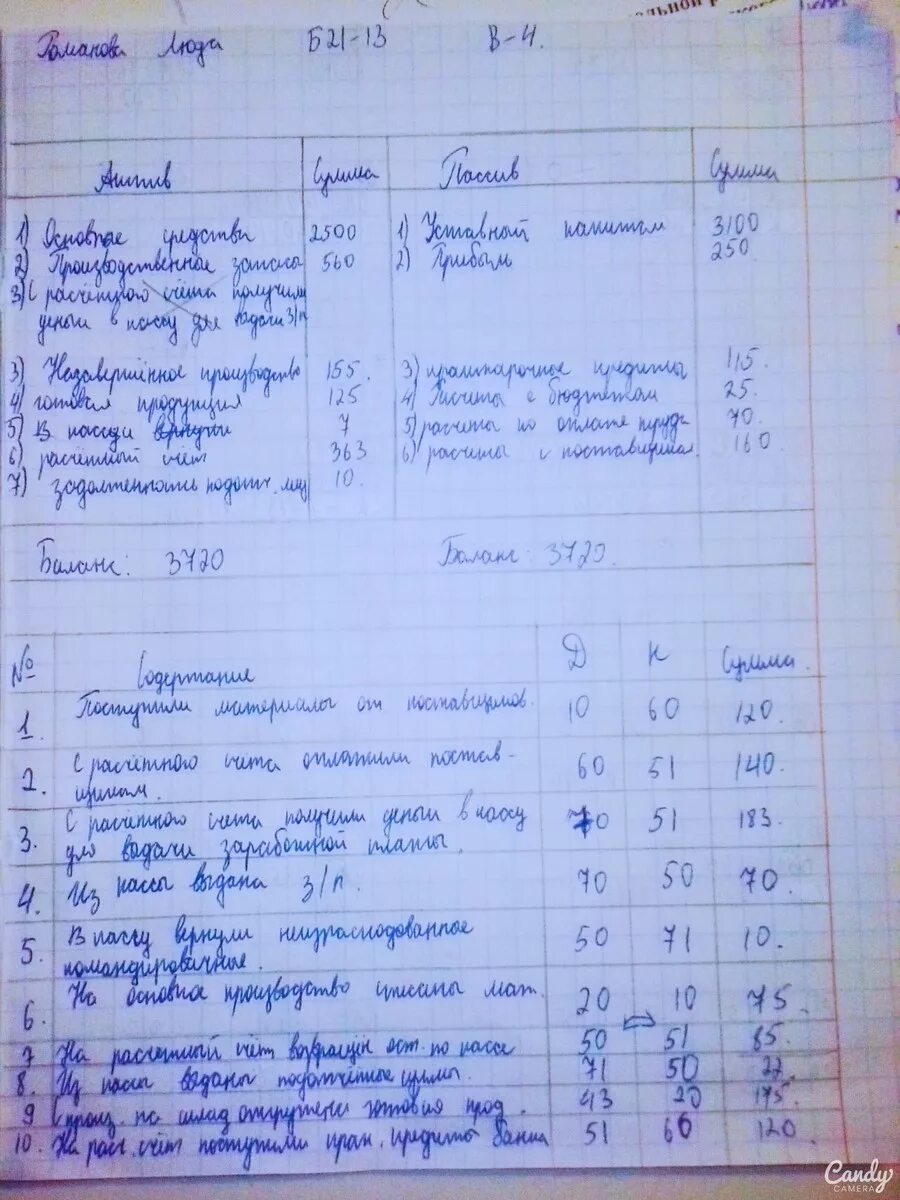 Романова Люда Б21-13 В-4.
Актив Сумма Пассив Сумма
1) Основные средства 2500 1) Уставный капитал 3100
2) Производственное запасы 560 2) Прибыль 250
3) С расчётного счёта получили
деньги в кассу для выдачи з/п
3) Незавершённое производство 155. 3) краткосрочные кредиты 115.
4) готовая продукция 125 4) Расчёты с бюджетом 25.
5) В кассу вернули 7 5) расчеты по оплате труда 70.
6) расчётный счёт 363 6) расчеты с поставщикам 160
7) задолженность подотч. лиц 10.
Баланс: 3720 Баланс: 3720.
№ Содержание Д К Сумма.
1. Поступили материалы от поставщиков. 10 60 120.
2. С расчётного счета оплатили постав-
щикам. 60 51 140.
3. С расчётного счета получили деньги в кассу
для выдачи заработной платы. 51 183.
4. Из кассы выдана з/п. 70 50 70.
5. В кассу вернули неизрасходованное
командировачные. 50 71 10.
6. На основное производство списаны мат. 20 10 75.
7 На расчетный счёт возвращён ост. по кассе 50 51 85.
8. Из кассы выданы подотчётные суммы. 71 50
9 С произ. на склад отгружена готовая прод. 43 20 175.
10. На расч. счёт поступили кредиты банка 51 60 120
Candy
CAMERA